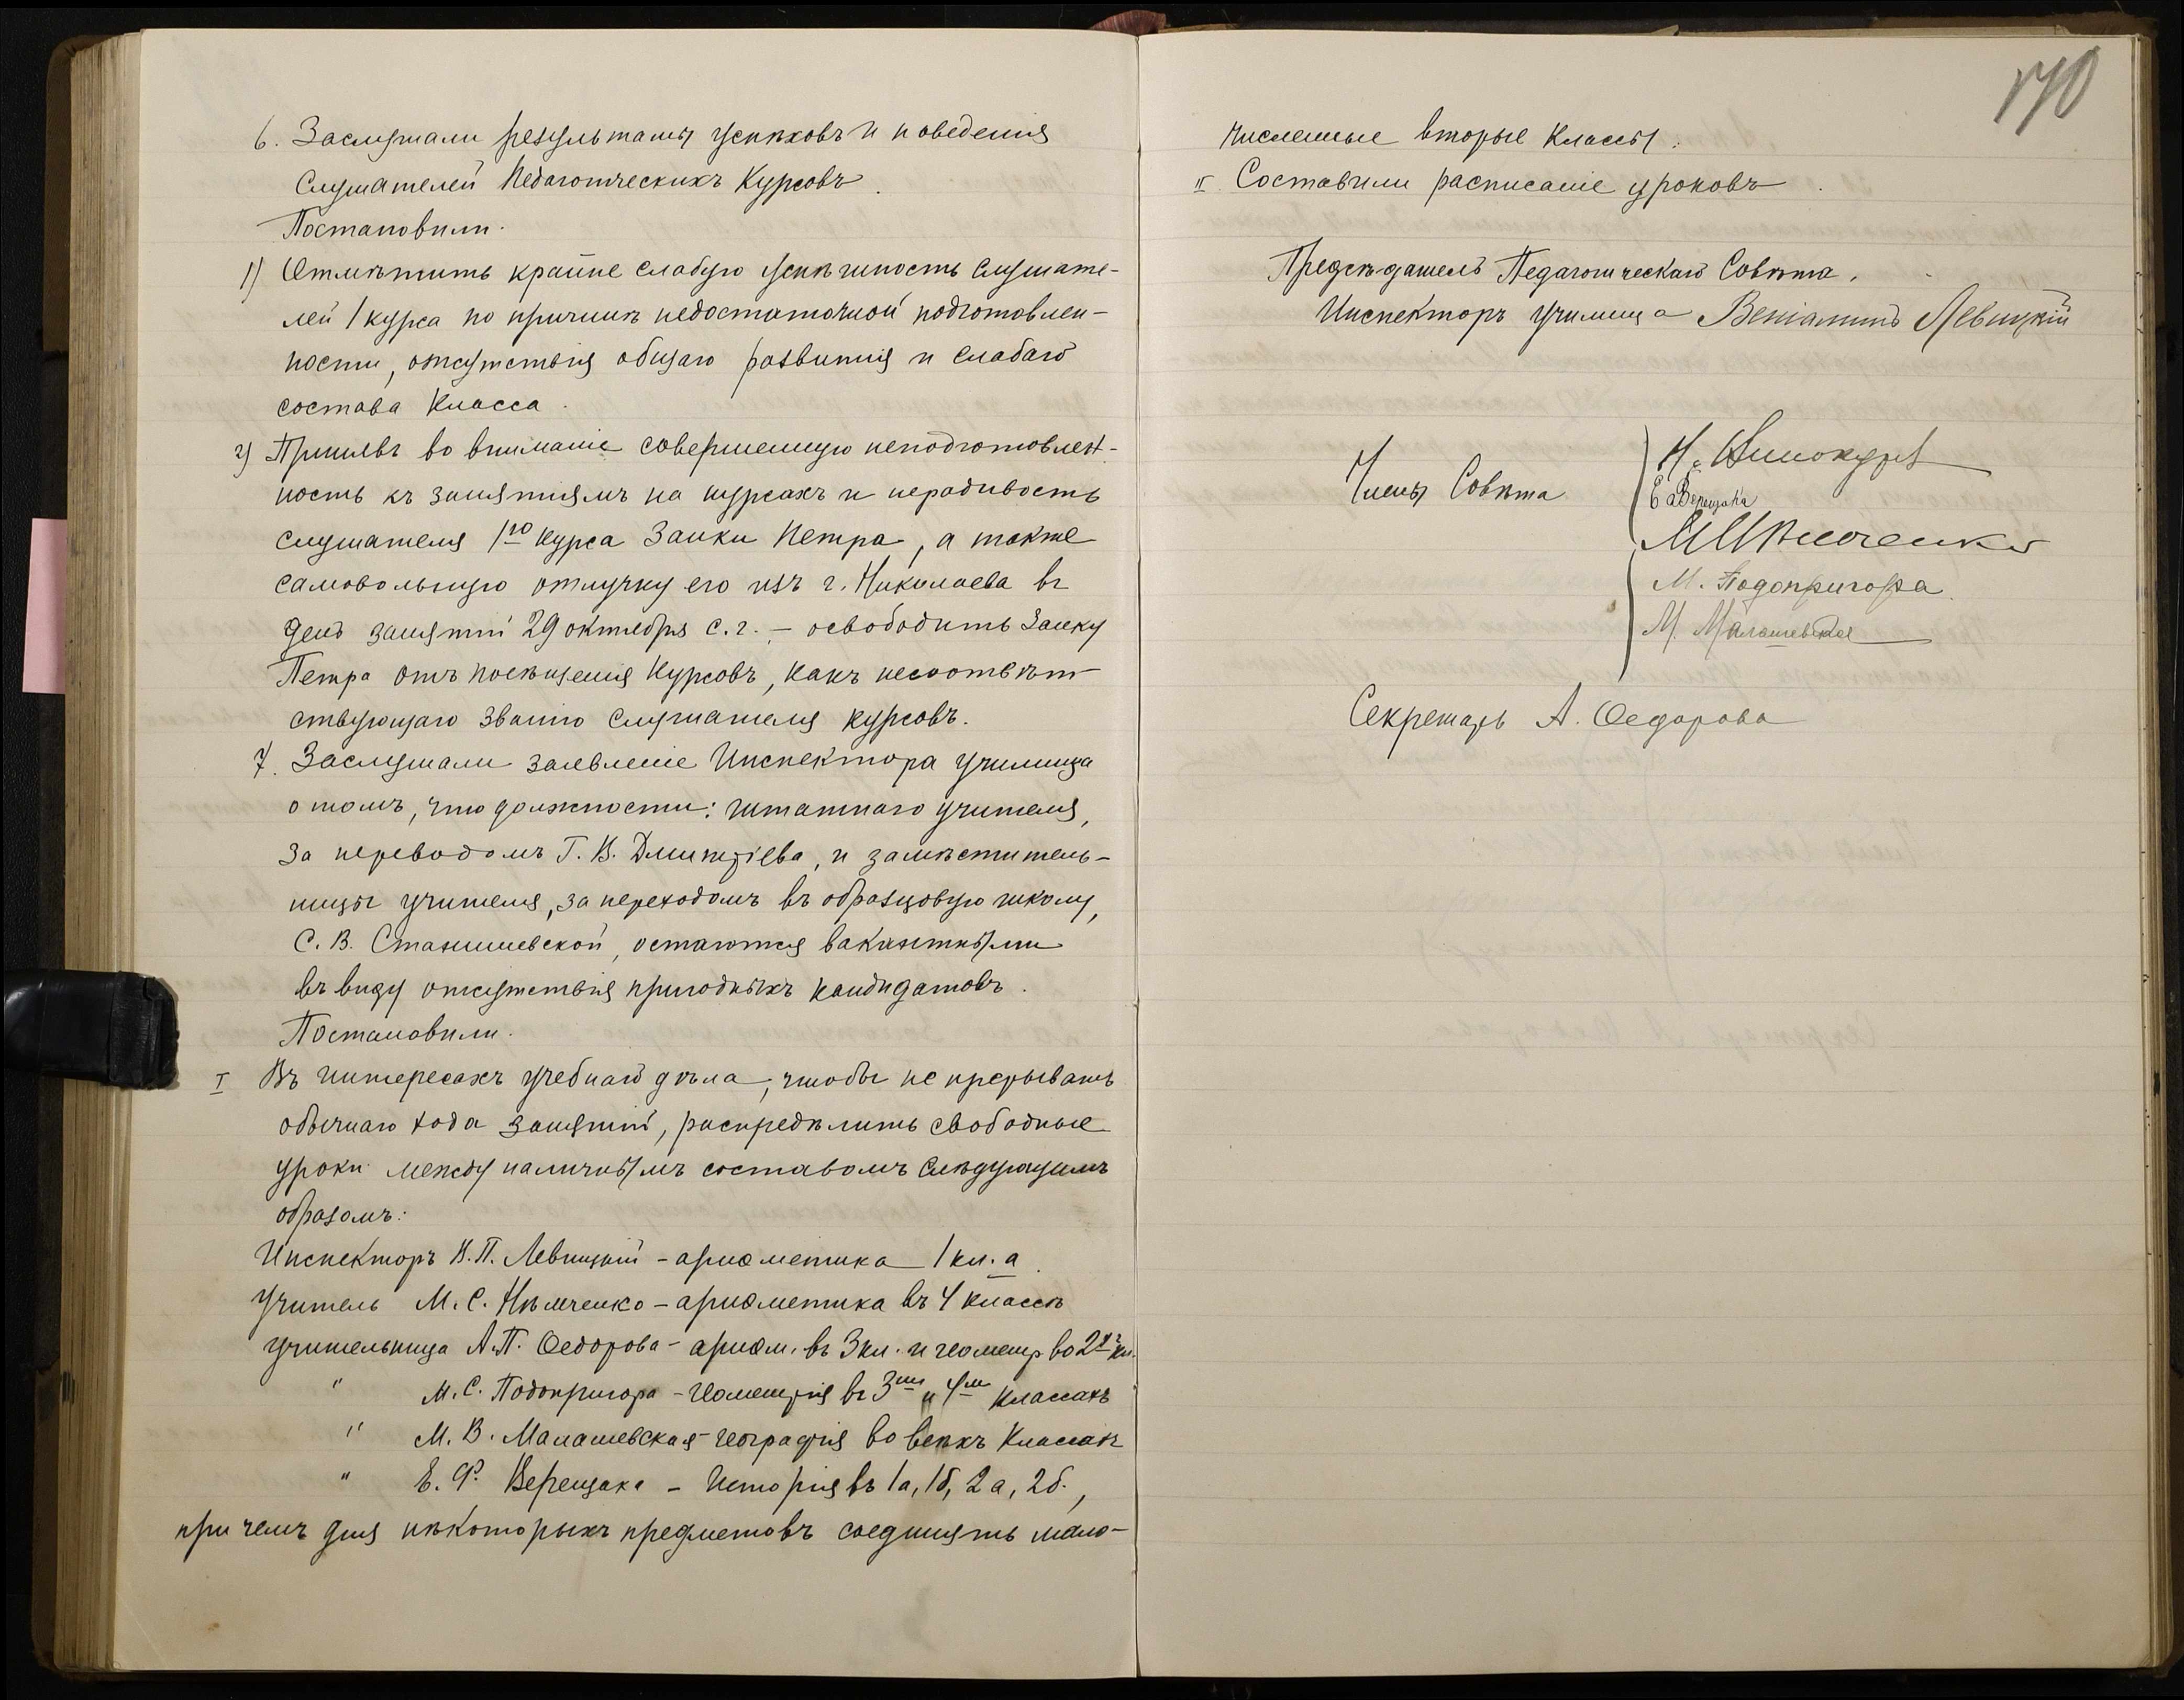 6. Заслушали результаты успѣховъ и поведенія
слушателей Педагогическихъ Курсовъ.
Постановили.
1) Отмѣтить крайне слабую успѣшность слушате-
лей 1 курса по причинѣ недостаточной подготовлен-
ности, отсутствія общаго развитія и слабаго
состава класса.
2) Принявъ во вниманіе совершенную неподготовлен-
ность къ занятіямъ на курсахъ и нерадивость
слушателя 1го курса Заики Петра, а также
самовольную отлучку его изъ г. Николаева въ
день занятій 29 октября с.г. – освободить Заику
Петра отъ посѣщенія Курсовъ, какъ несоотвѣт-
ствующаго званію слушателя курсовъ.
7. Заслушали заявленіе Инспектора училища
о томъ, что должности: штатнаго учителя,
за переводомъ Г. В. Дмитріева, и замѣститель-
ницы учителя, за переходомъ въ образцовую школу,
С. В. Станишевской, остаются вакантными
въ виду отсутствія пригодныхъ кандидатовъ.
Постановили.
I Въ интересахъ учебнаго дѣла, чтобы не прерывать
обычнаго хода занятій, распредѣлить свободные
уроки между наличнымъ составомъ слѣдующимъ
образомъ:
Инспекторъ В. П. Левицкій – ариѳметика 1 кл. а.
Учитель М. С. Нѣмченко – ариѳметика въ 4 классѣ
учительница А. П. Ѳедорова – ариѳм. въ 3 кл. и геометр во 2хъ кл.
" М. С. Подопригора – геометрія въ 3мъ и 4мъ классахъ
" М. В. Малашевская – географія во всѣхъ классахъ
" Е. Ф. Верещака – Исторія въ 1а, 1б, 2а, 2б.,
при чемъ для нѣкоторыхъ предметовъ соединять мало-
170
численные вторые классы.
II. Составили расписаніе уроковъ.
Предсѣдатель Педагогическаго Совѣта,
Инспекторъ училища Веніаминъ Левицкій
Члены Совѣта
Н. Винокуров
Е Верещака
М Нѣмченко
М. Подопригора.
М. Малашевская
Секретарь А. Ѳедорова